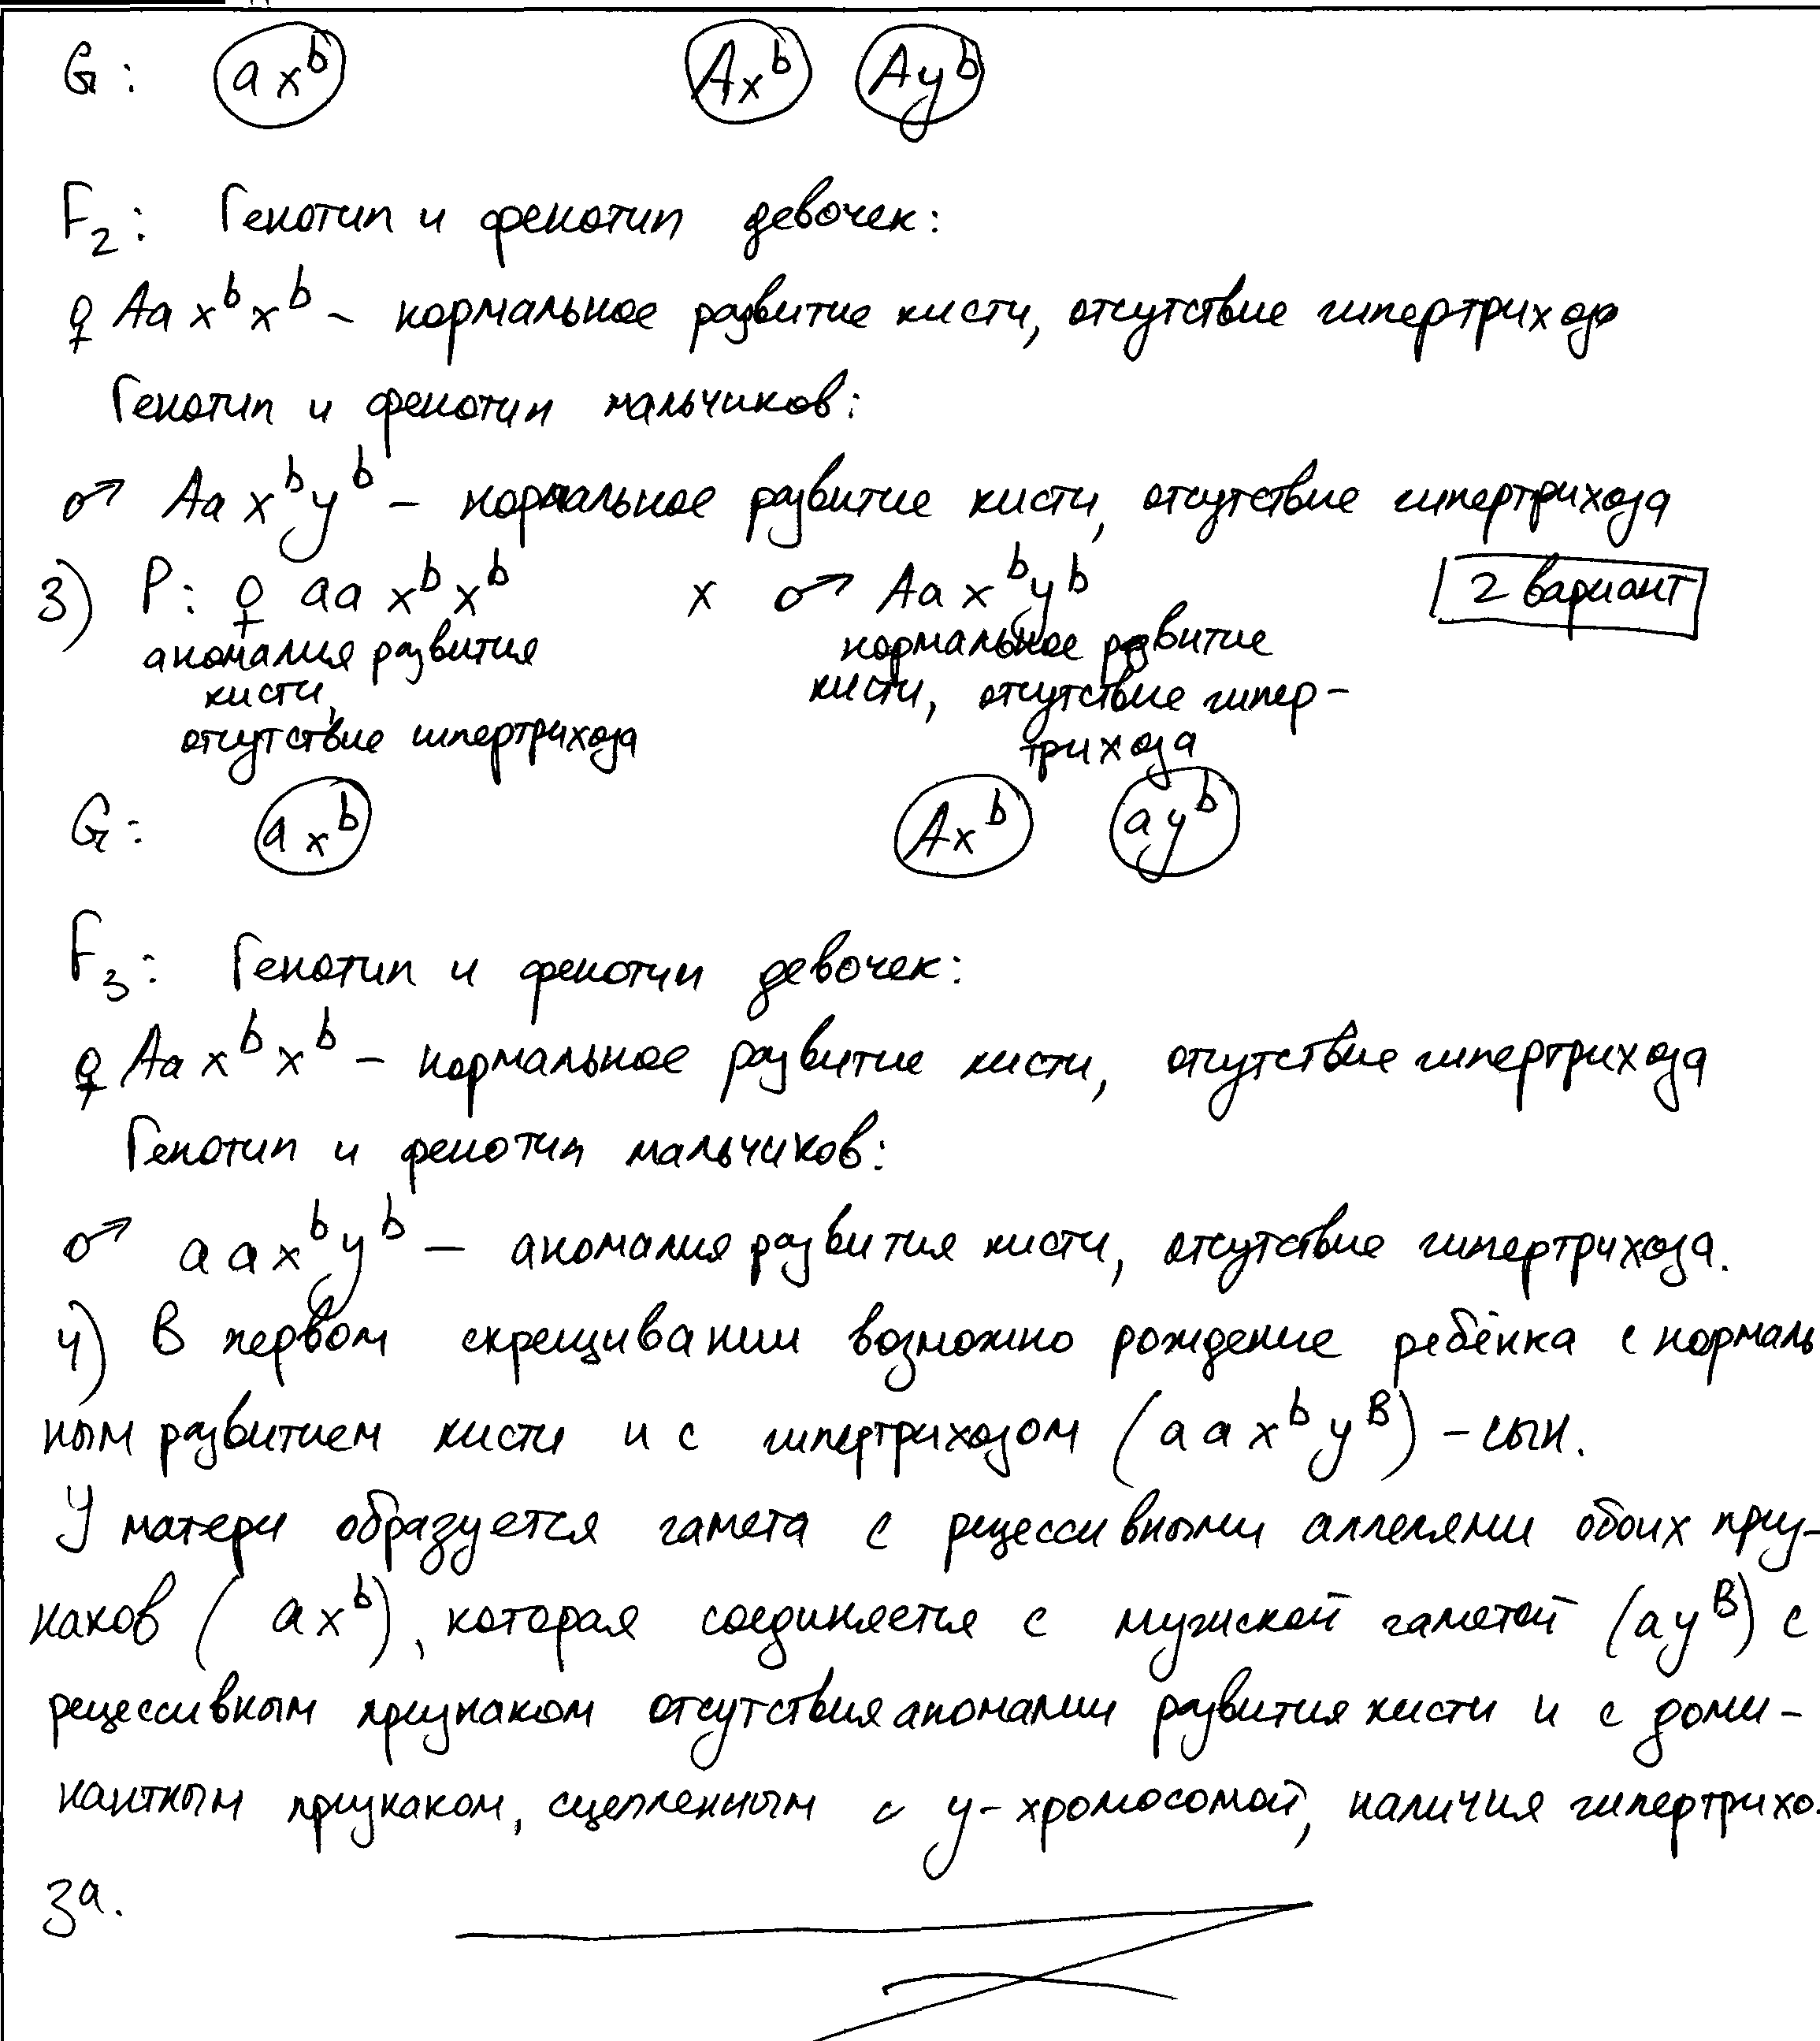 G: ax^b Ax^b Ay^b
F₂: Генотип и фенотип девочек:
♀ Aa x^b x^b – нормальное развитие кисти, отсутствие гипертрихоза
Генотип и фенотип мальчиков:
♂ Aa x^b y^b – нормальное развитие кисти, отсутствие гипертрихоза
3) P: ♀ aa x^b x^b x ♂ Aa x^b y^b 2 вариант
аномалия развития нормальное развитие
кисти, кисти, отсутствие гипер-
отсутствие гипертрихоза трихоза
G: ax^b Ax^b ay^b
F₃: Генотип и фенотип девочек:
♀ Aa x^b x^b – нормальное развитие кисти, отсутствие гипертрихоза
Генотип и фенотип мальчиков:
♂ aa x^b y^b – аномалия развития кисти, отсутствие гипертрихоза.
4) В первом скрещивании возможно рождение ребёнка с нормаль
ным развитием кисти и с гипертрихозом (aa x^b y^B) – сын.
У матери образуется гамета с рецессивными аллелями обоих приз-
наков (ax^b), которая соединяется с мужской гаметой (ay^B) с
рецессивным признаком отсутствия аномалии развития кисти и с доми-
нантным признаком, сцепленным с y-хромосомой, наличия гипертрихо-
за.